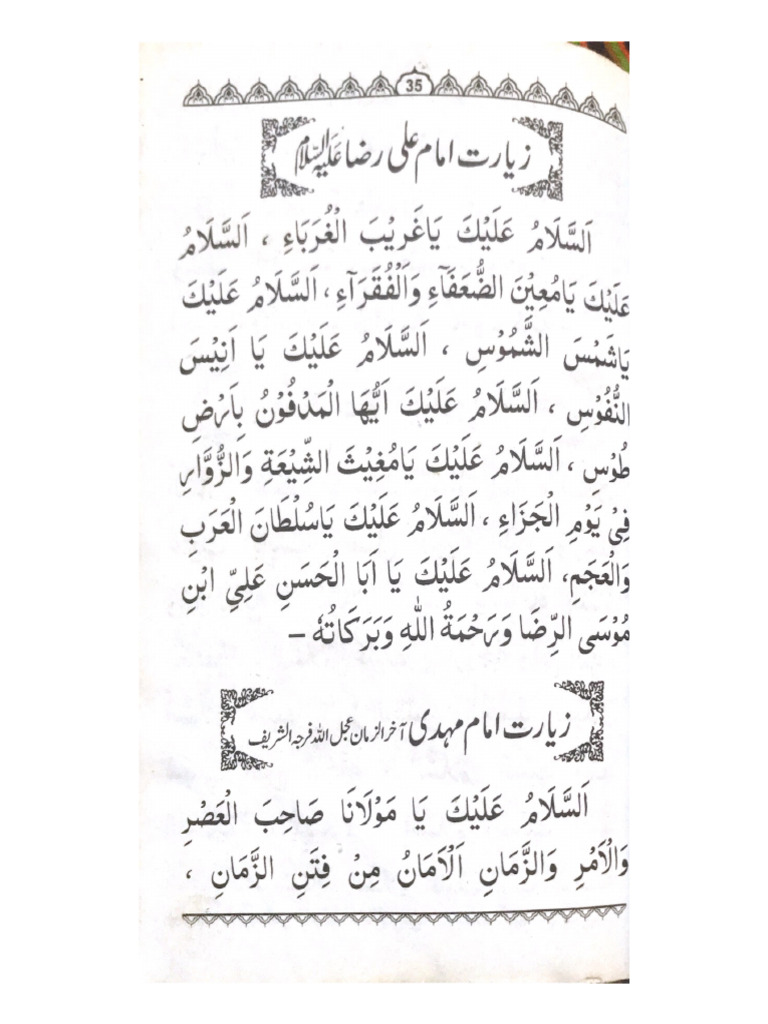 35
زیارت امام علی رضا علیہ السلام
اَلسَّلَامُ عَلَيْكَ يَاغَرِيْبَ الْغُرَبَاءِ ، اَلسَّلَامُ
عَلَيْكَ يَامُعِيْنَ الضُّعَفَآءِ وَالْفُقَرَآءِ، اَلسَّلَامُ عَلَيْكَ
يَاشَمْسَ الشُّمُوْسِ ، اَلسَّلَامُ عَلَيْكَ يَا اَنِيْسَ
النُّفُوْسِ ، اَلسَّلَامُ عَلَيْكَ اَيُّهَا الْمَدْفُوْنُ بِاَرْضِ
طُوْسِ ، اَلسَّلَامُ عَلَيْكَ يَامُغِيْثَ الشِّيْعَةِ وَالزُّوَّارِ
فِيْ يَوْمِ الْجَزَاءِ ، اَلسَّلَامُ عَلَيْكَ يَاسُلْطَانَ الْعَرَبِ
وَالْعَجَمِ، اَلسَّلَامُ عَلَيْكَ يَا اَبَا الْحَسَنِ عَلِيِّ ابْنِ
مُوْسَى الرِّضَا وَرَحْمَةُ اللهِ وَبَرَكَاتُهٗ –
زیارت امام مہدی آخر الزمان عجل اللہ فرجہ الشریف
اَلسَّلَامُ عَلَيْكَ يَا مَوْلَانَا صَاحِبَ الْعَصْرِ
وَالْاَمْرِ وَالزَّمَانِ اَلْاَمَانُ مِنْ فِتَنِ الزَّمَانِ ،